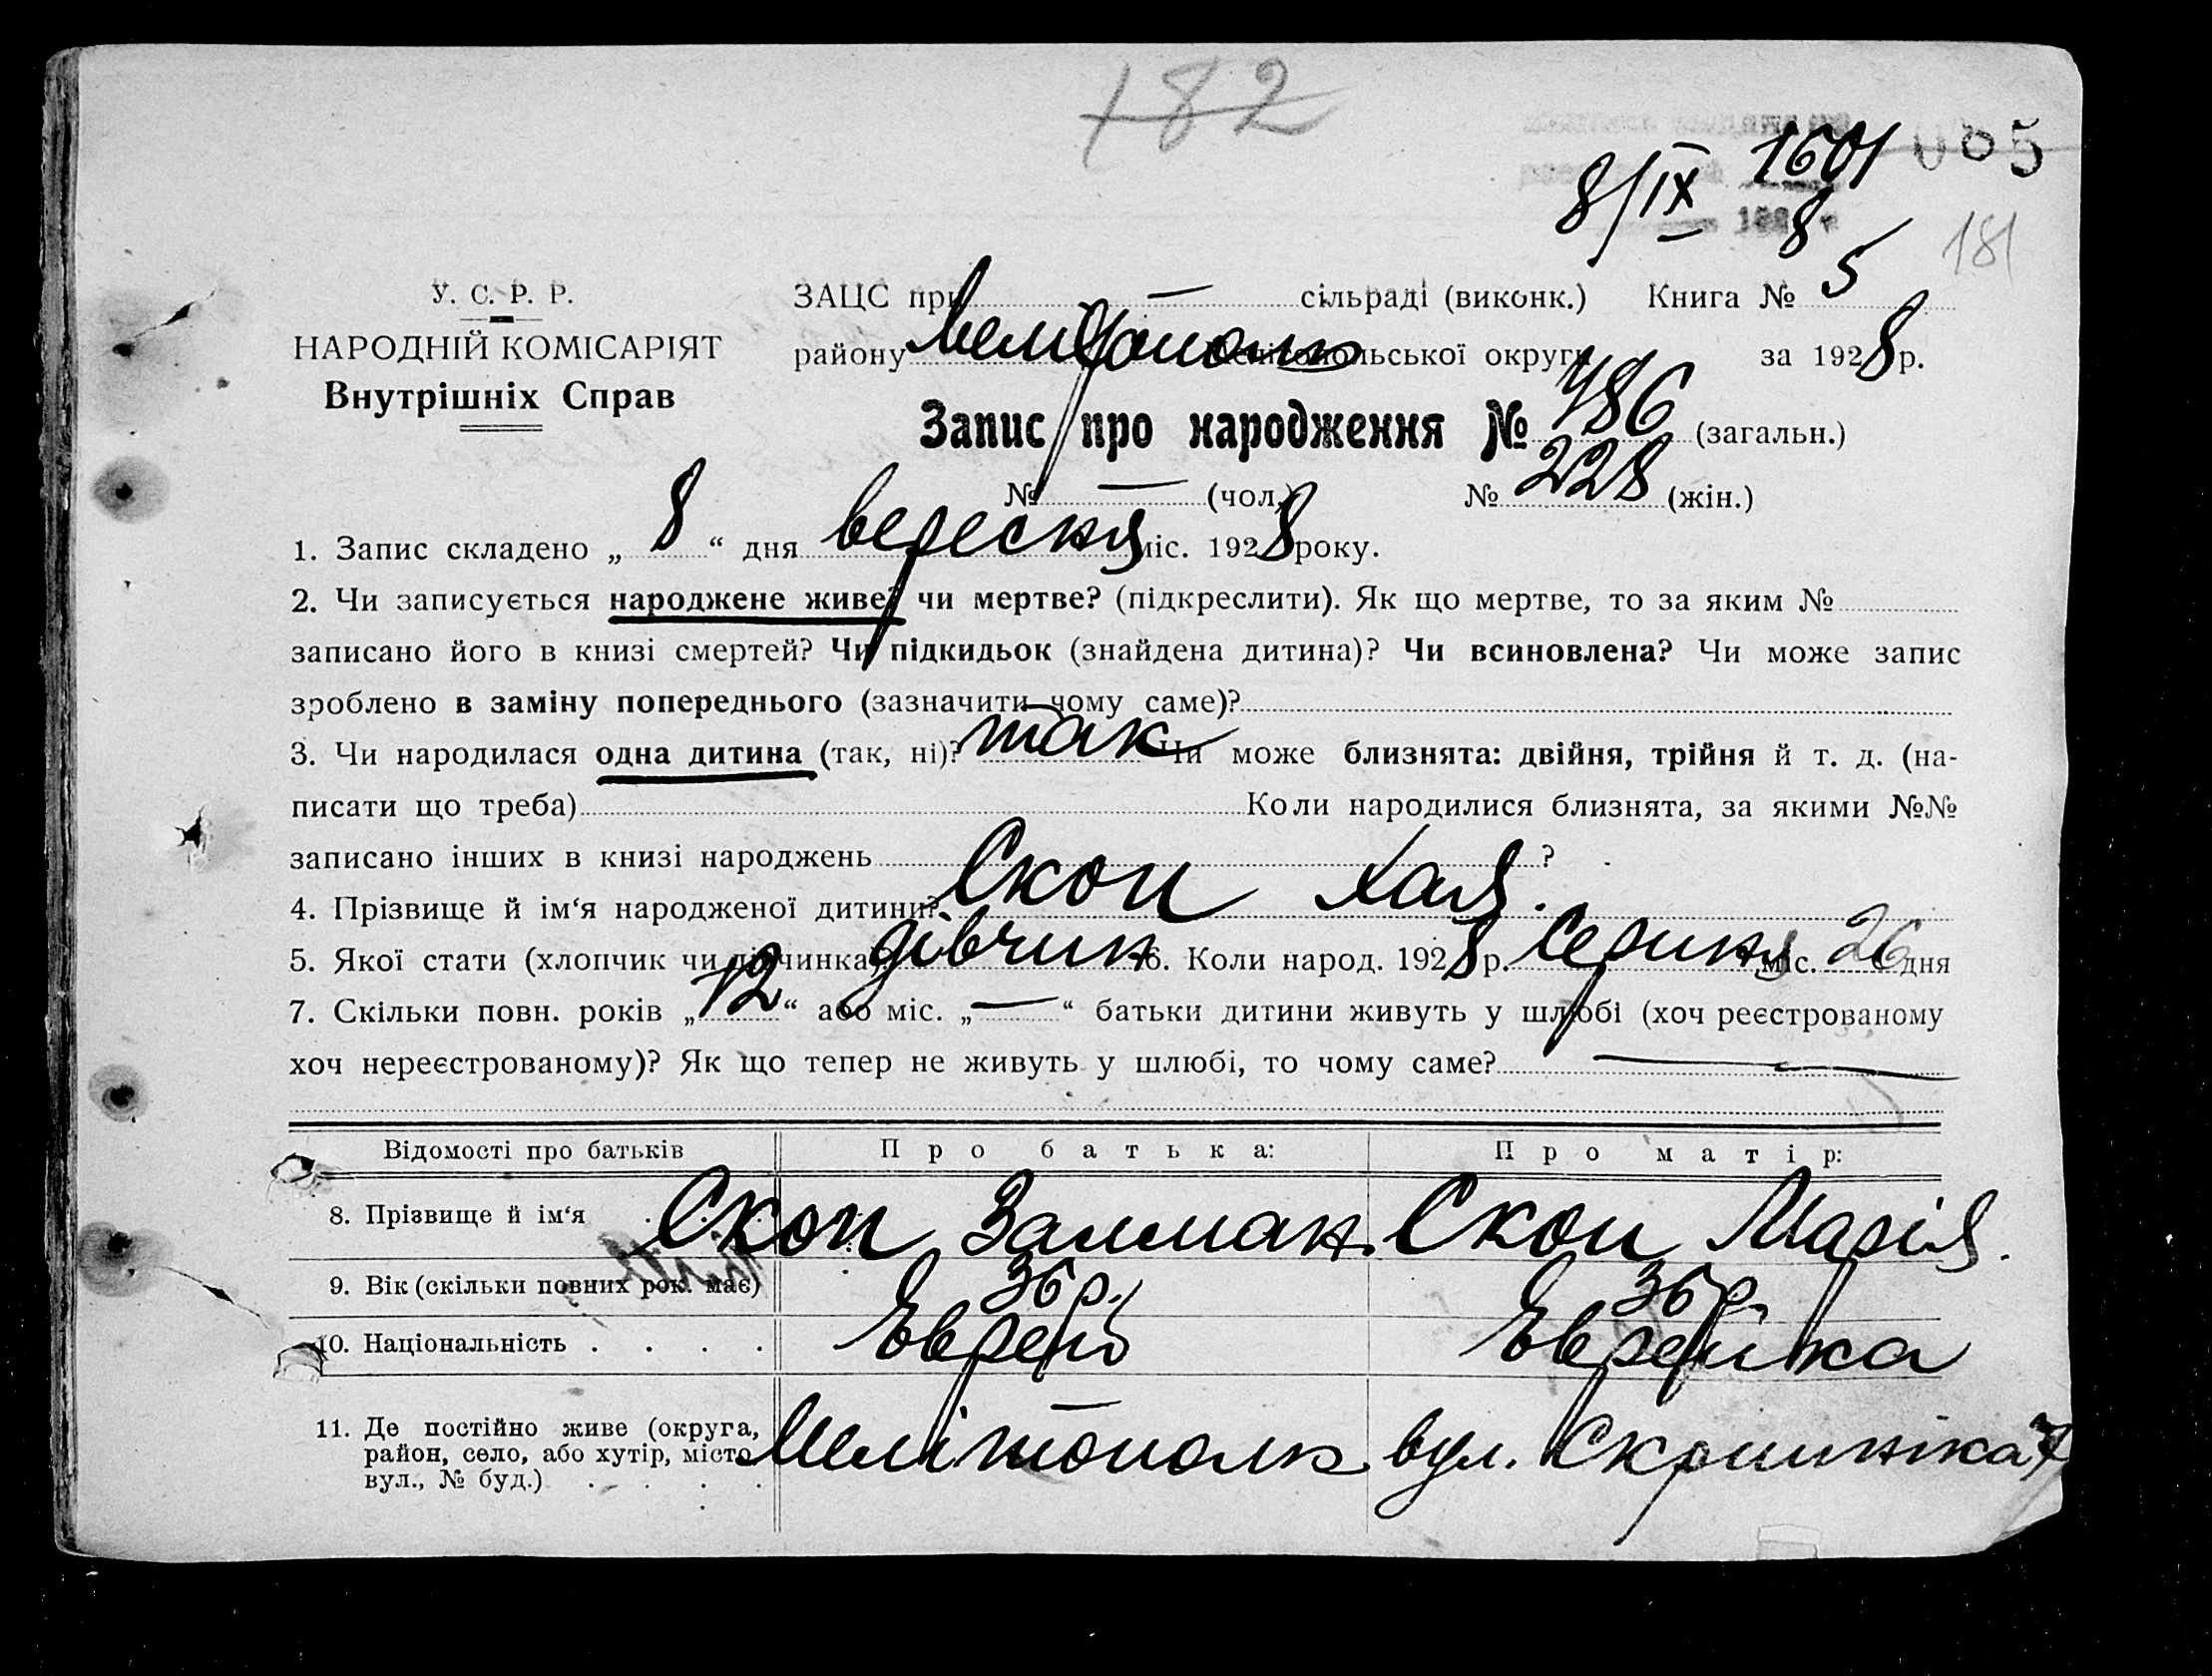 182
1601 085
8/IX
1928 р
181
У. С. Р. Р.
НАРОДНІЙ КОМІСАРІЯТ
Внутрішніх Справ
ЗАЦС при — сільраді (виконк.) Книга № 5
району Мелітополь Мелітопольської округи за 1928 р.
Запис про народження № 486 (загальн.)
№ — (чол.) № 228 (жін.)
1. Запис складено „ 8 “ дня вересня міс. 1928 року.
2. Чи записується народжене живе? чи мертве? (підкреслити). Як що мертве, то за яким №
записано його в книзі смертей? Чи підкидьок (знайдена дитина)? Чи всиновлена? Чи може запис
зроблено в заміну попереднього (зазначити чому саме)?
3. Чи народилася одна дитина (так, ні)? так Чи може близнята: двійня, трійня й т. д. (на-
писати що треба) Коли народилися близнята, за якими №№
записано інших в книзі народжень ?
4. Прізвище й ім‘я народженої дитини? Скоп Хая.
5. Якої стати (хлопчик чи дівчинка)? дівчин 6. Коли народ. 1928 р. Серпня міс. 26 дня
7. Скільки повн. років „ 12 “ або міс. „ — “ батьки дитини живуть у шлюбі (хоч реєстрованому
хоч нереєстрованому)? Як що тепер не живуть у шлюбі, то чому саме? —
Відомості про батьків Про батька: Про матір:
8. Прізвище й ім‘я Скоп Залман. Скоп Марія.
9. Вік (скільки повних рок. має) 36 р. 36 р.
10. Національність Єврей Єврейка
11. Де постійно живе (округа,
район, село, або хутір, місто Мелітополь вул. Скрипніка 7
вул., № буд.)